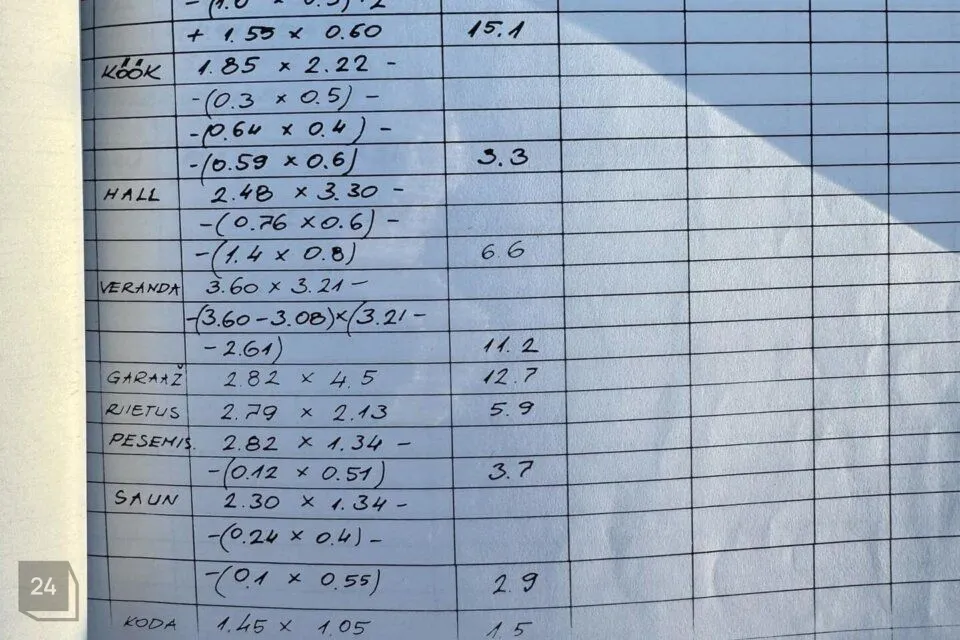 -(1.0 × 0.5)·2
+ 1.55 × 0.60 15.1
KÖÖK 1.85 × 2.22 -
-(0.3 × 0.5) -
-(0.64 × 0.4) -
-(0.59 × 0.6) 3.3
HALL 2.48 × 3.30 -
-(0.76 × 0.6) -
-(1.4 × 0.8) 6.6
VERANDA 3.60 × 3.21 -
-(3.60 - 3.08)×(3.21 -
- 2.61) 11.2
GARAAŽ 2.82 × 4.5 12.7
RIIETUS 2.79 × 2.13 5.9
PESEMIS. 2.82 × 1.34 -
-(0.12 × 0.51) 3.7
SAUN 2.30 × 1.34 -
-(0.24 × 0.4) -
-(0.1 × 0.55) 2.9
KODA 1.45 × 1.05 1.5
24